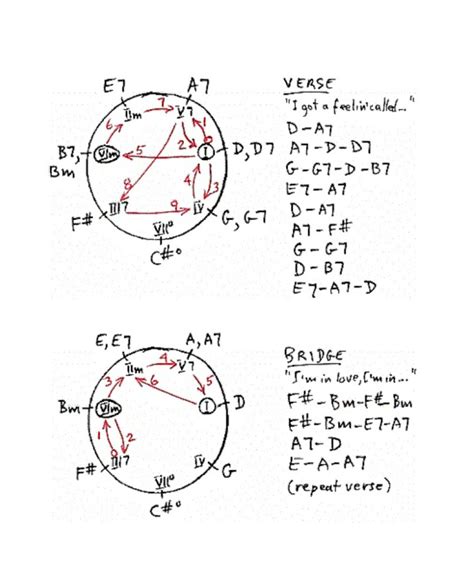 E7 A7
7
IIm V7
6 1
2
B7, 5 D, D7
Bm VIm I
8 4 3
9
F# III7 IV G, G7
VII°
C#°
VERSE
"I got a feelin' called..."
D-A7
A7-D-D7
G-G7-D-B7
E7-A7
D-A7
A7-F#
G-G7
D-B7
E7-A7-D
E, E7 A, A7
4
IIm V7
3 6 5
Bm VIm I D
1 2
F# III7 IV G
VII°
C#°
BRIDGE
"I'm in love, I'm in..."
F#-Bm-F#-Bm
F#-Bm-E7-A7
A7-D
E-A-A7
(repeat verse)